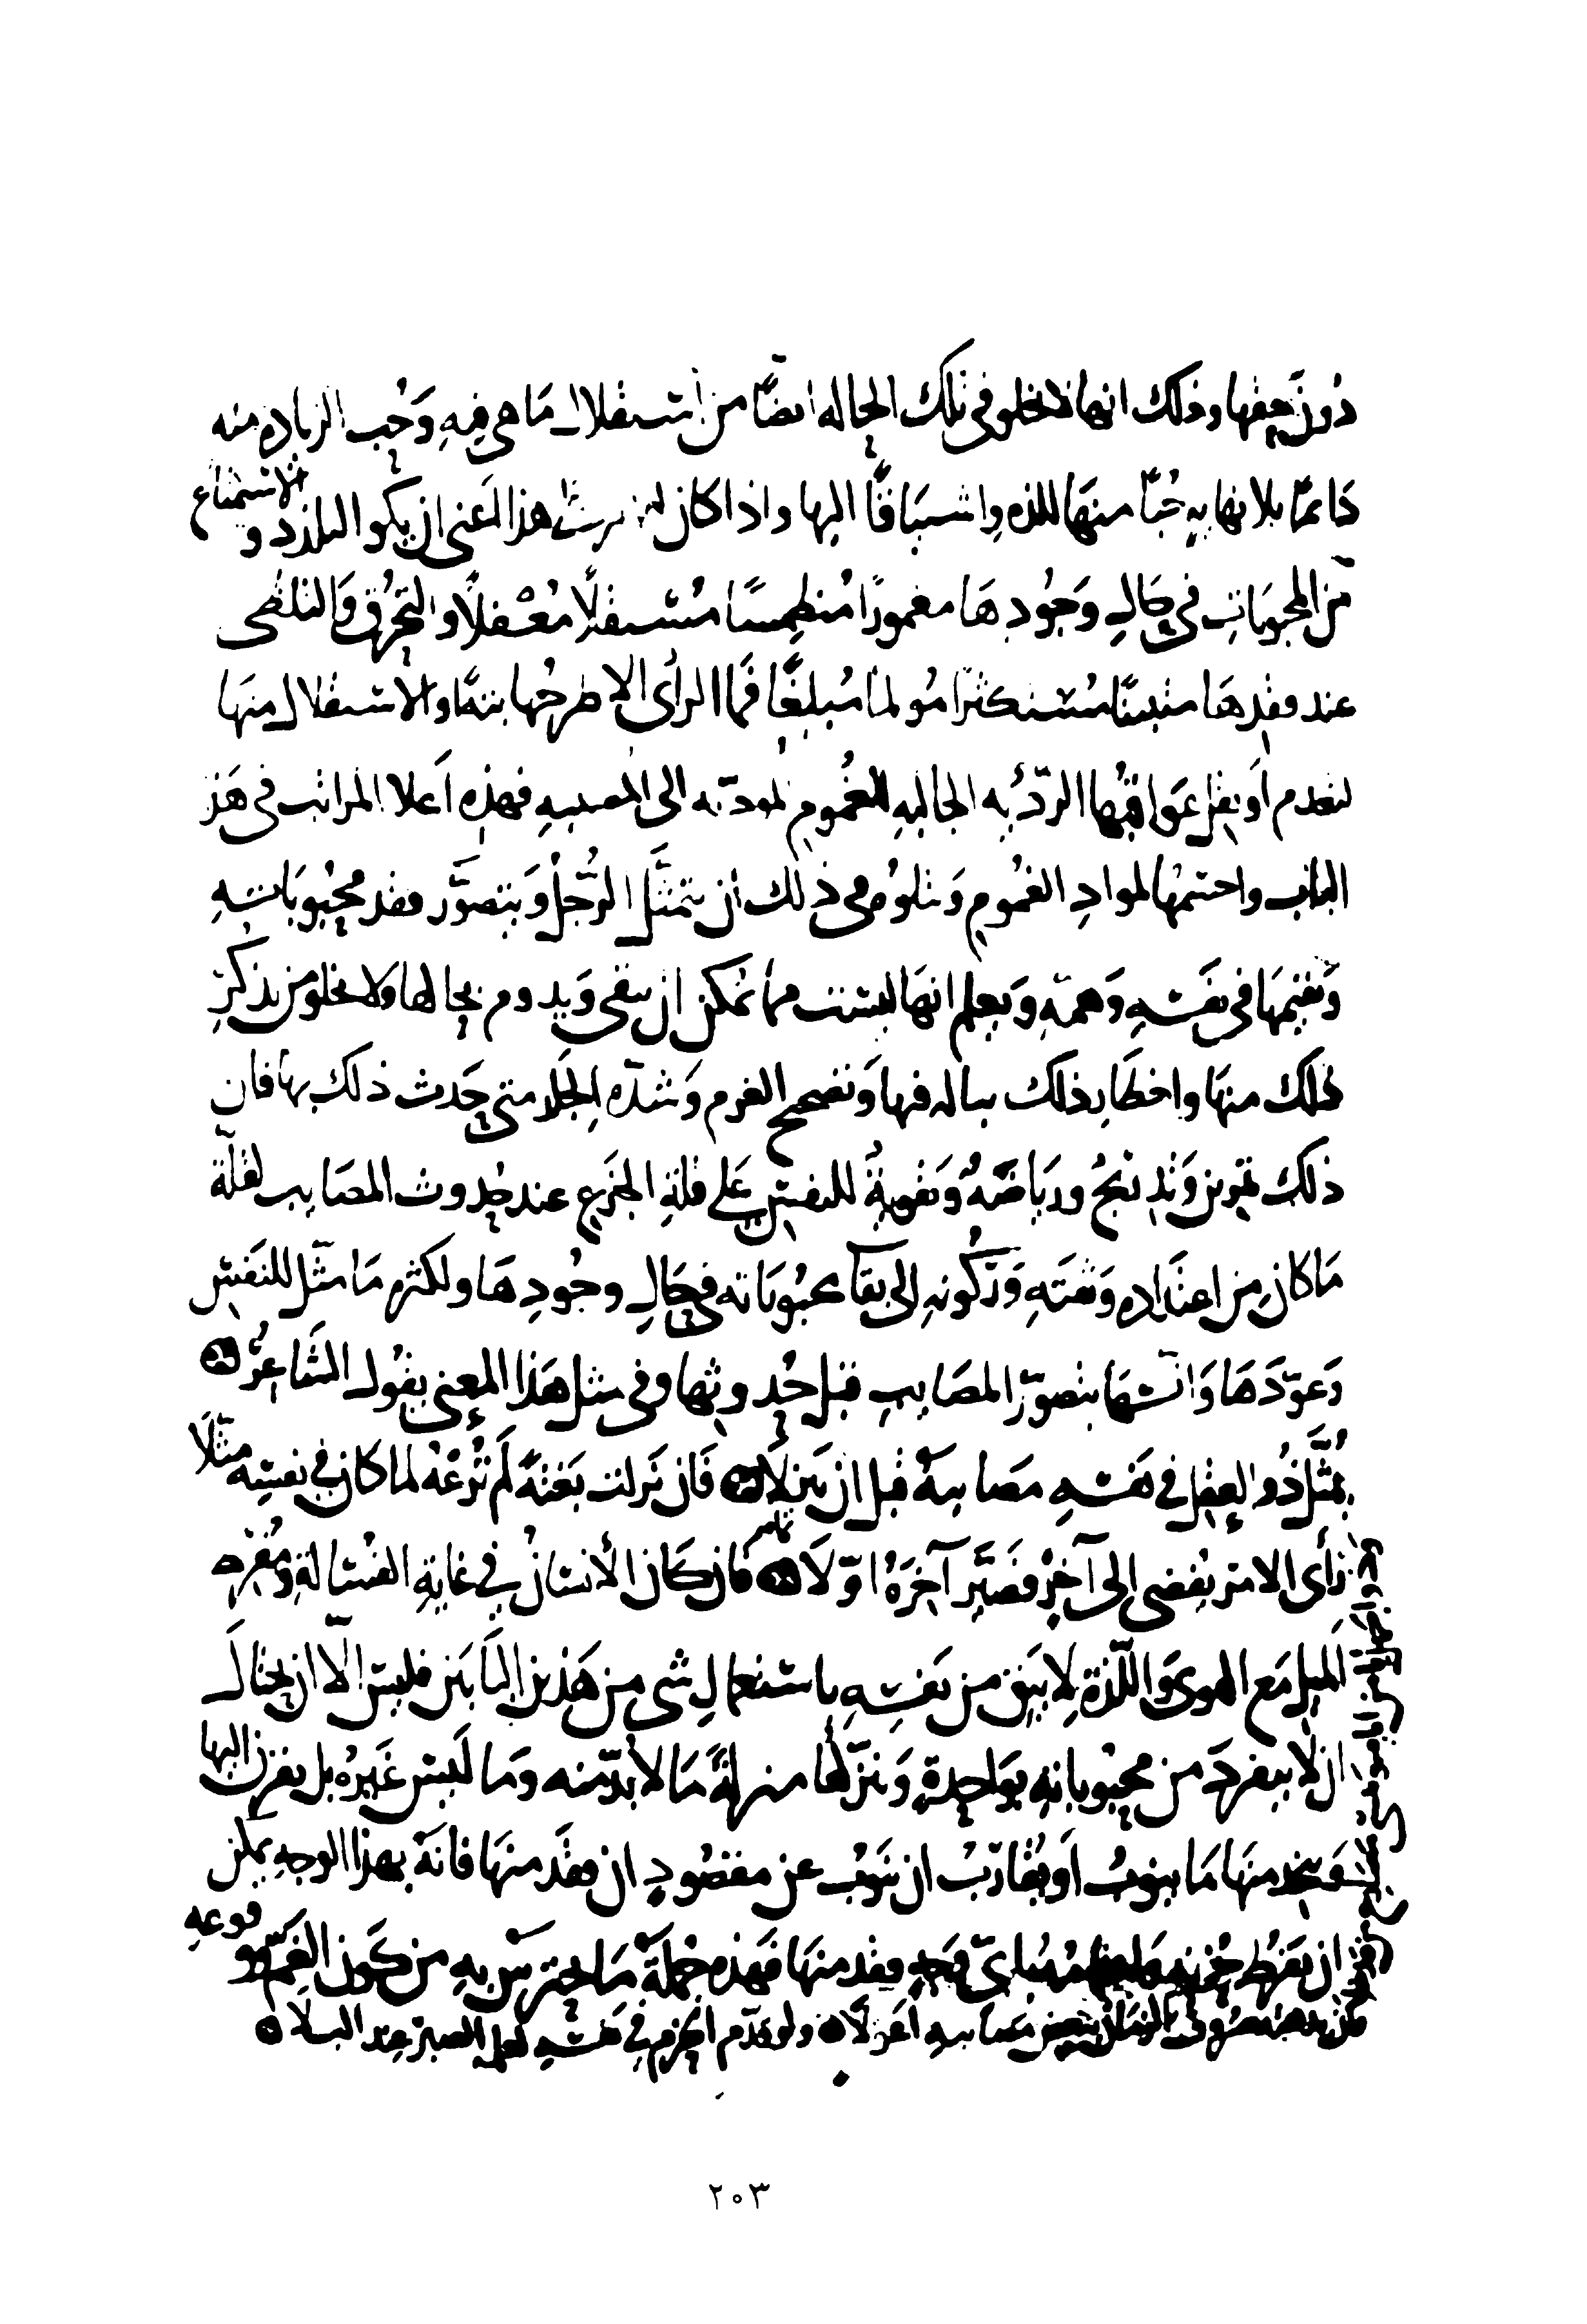 دُونَ حقها وذلك انها لا تخلو فى تلك الحاله ايضًا من استقلال مَا هى فيهِ وَحُب الزياده منه
دَائمًا بلا نهايهٍ حُبًّا منهَا للذه واشتيَاقًا اليها واذا كان هذا المعنى ان يكو التلذذ و الاستمتاع
من المحبوبَاتِ فى حَالِ وَجُودِهَا مغمورًا مُنطمِسًا مُستقلًا مُغفلًا والتحَرُّق وَالتلظى
عند فقدِهَا متبينًا مُستكثرًا مُولمًا مُبلِغًا فَما الرأى الا طرحُها بتهً او الاستقلال منهَا
لتعدم اَو يقل عَوَاقبُها الرّدئيه الجالبهِ للغُمومِ المودّيه الى المصيبهِ فهذِهِ اَعلا المراتب فى هَذ
الباب واحسَمها لموادِ الغمُومِ وَيتلوُهَا فى ذلك ان يتمثَّل الرَّجُلُ وَيتصَوَّر فقد محبُوبَاتهِ
وَيقيمهَا فى نفسْهِ وَهمّهِ وَيعلم انهَا ليسْت مما يُمكن ان يبقى وَيدوم بحالها وَلا يخلو من تذكرِ
ذلك منهَا واخطَارِ ذلك بباله فيها وَتصحيح العزم وَشدّه الجَلد متى حَدث ذلك بها فان
ذلك تمرين وَتدريجُ وريَاضَهُ وَتقويةُ للنفسْ عَلى قلةِ الجَزَعِ عند حُدوث المصَايب لقلّة
مَا كان مِن اعتَادِه وَثقتَهِ وَرُكُونهِ الى بقآ محبُوبَاته فى حَالِ وجُودِهَا ولكثره مَا مثّل للنَفسْ
وَعوّدَهَا وَآنسْهَا بتصوّرِ المصَايبِ قبل حُدوثِها وفى مثل هَذا المعنى يقُول الشَاعِرُ ۞
يُمثّل ذُو العقل فى نفسْهِ مصَايبهُ قبل ان تنزلَا ۞ فَان نزلت بَغتهً لَم تُرعْهُ لما كان فى نفسِه مثَّلَا
رَأى الامر يُفضى الى آخِرٍ فَصَيَّر آخِرَهُ اوّلَا ۞ فان كَان الأنسَانُ فى غايةِ الفسَالةِ ومُفرِط
المَيل مَع الهوى وَاللّذةِ لا يثق من نفسِهِ باستعمالِ شى من هَذين البَابَين فليسْ الّا ان يحتالَ
ان لا ينفردَ من محبوباتهِ بوَاحِدةٍ وَينزلها منزلةَ مَا لا بدّ منه وَمَا ليسْ غَيرُه بل يقرن اليها
وَيتخد منهَا مَا ينوبُ اَو يُقارَبُ ان يَنوب عن مفقُودٍ ان فقَد منهَا فانّهُ بهذا الوجهِ يمكن
ان يفرُط حُزنهِ فقد منهَا فهَذِه جُملَة مَا يحترس بهِ من كَون الغمّ وَوقوعهِ
مصَايبهِ اعزلَا ۞ ولو قدّم الحزم فى نفسْهِ لعلمه الصبرَ عِند البلا ۞
٢٠٣